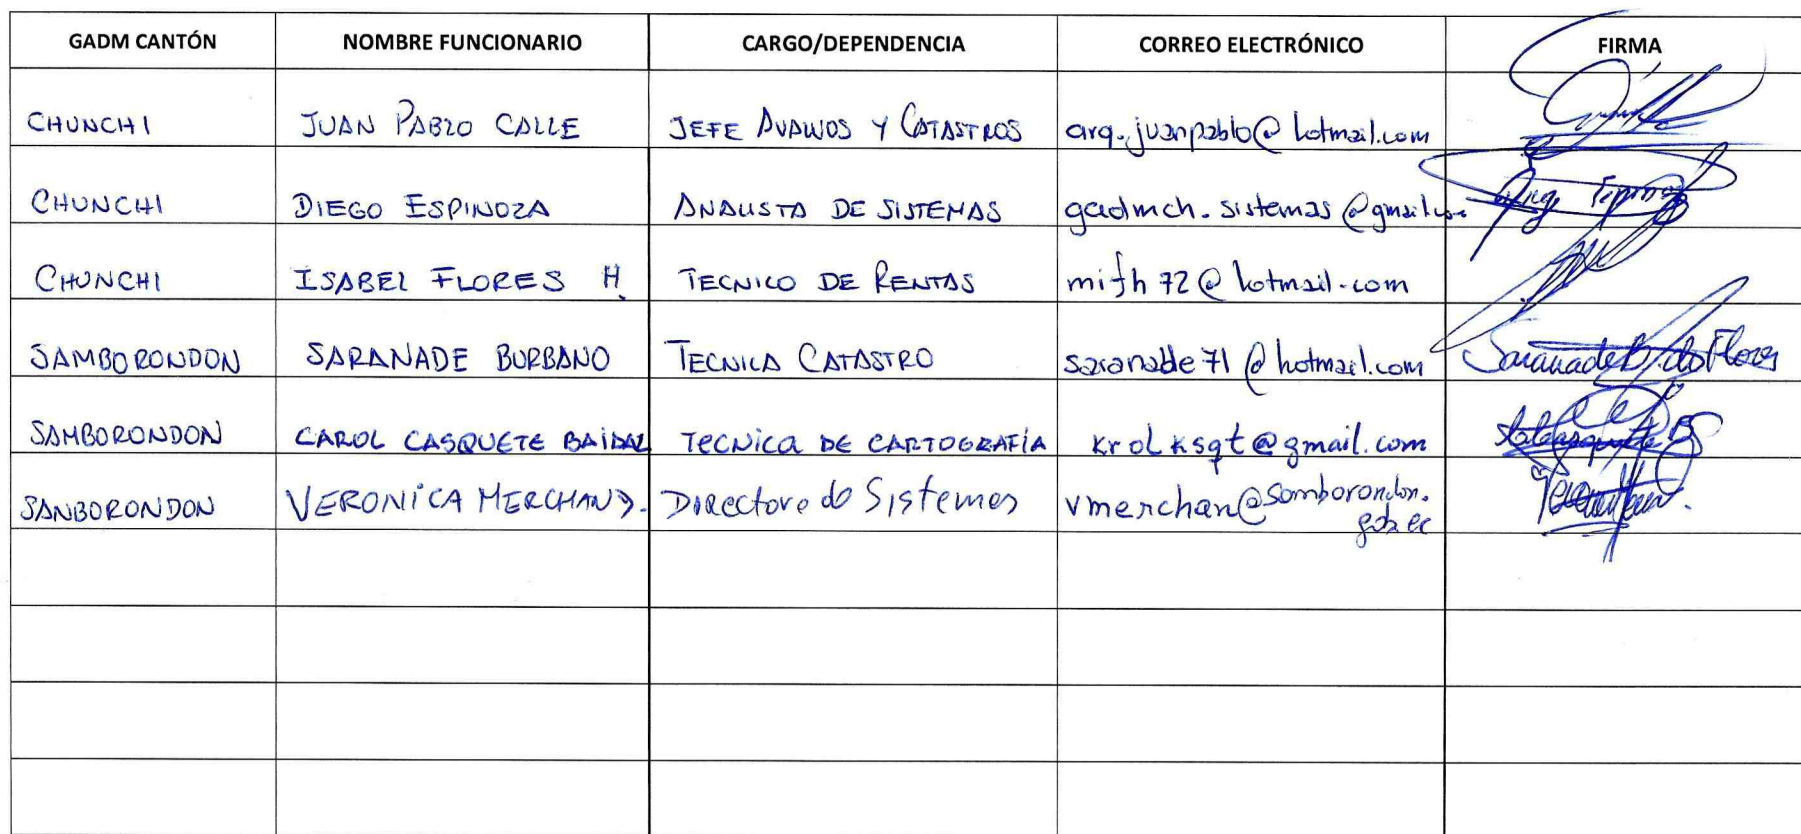 GADM CANTÓN NOMBRE FUNCIONARIO CARGO/DEPENDENCIA CORREO ELECTRÓNICO FIRMA
CHUNCHI JUAN PABLO CALLE JEFE AVALUOS Y CATASTROS arq.juanpablo@hotmail.com
CHUNCHI DIEGO ESPINOZA ANALISTA DE SISTEMAS gadmch.sistemas@gmail.com
CHUNCHI ISABEL FLORES H. TECNICO DE RENTAS mifh72@hotmail.com
SAMBORONDON SARANADE BURBANO TECNICA CATASTRO saranade71@hotmail.com Saranade B. do Flores
SAMBORONDON CAROL CASQUETE BAIDAL TECNICA DE CARTOGRAFÍA krolksqt@gmail.com
SANBORONDON VERONICA MERCHAN D. Directora de Sistemas vmerchan@samborondon.
gob.ec